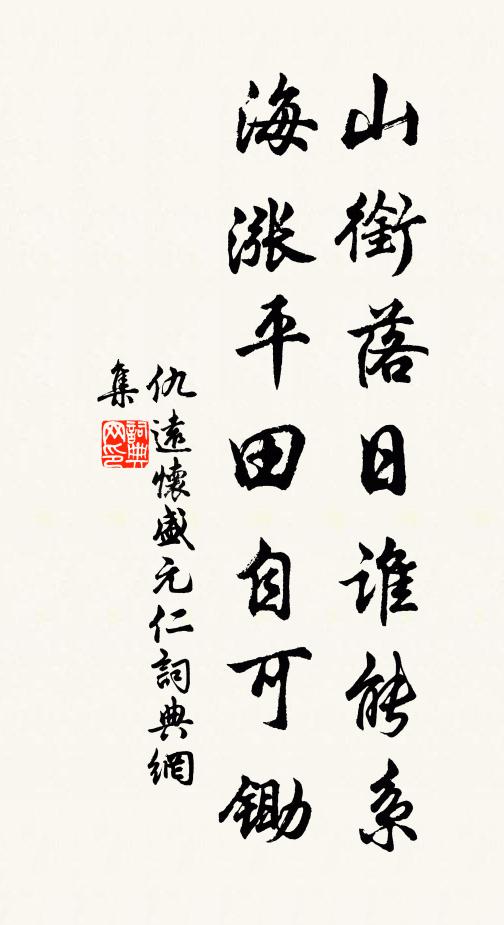 山銜落日谁能系
海漲平田自可鋤
仇遠懷盛元仁詞典網
集
詞典网印